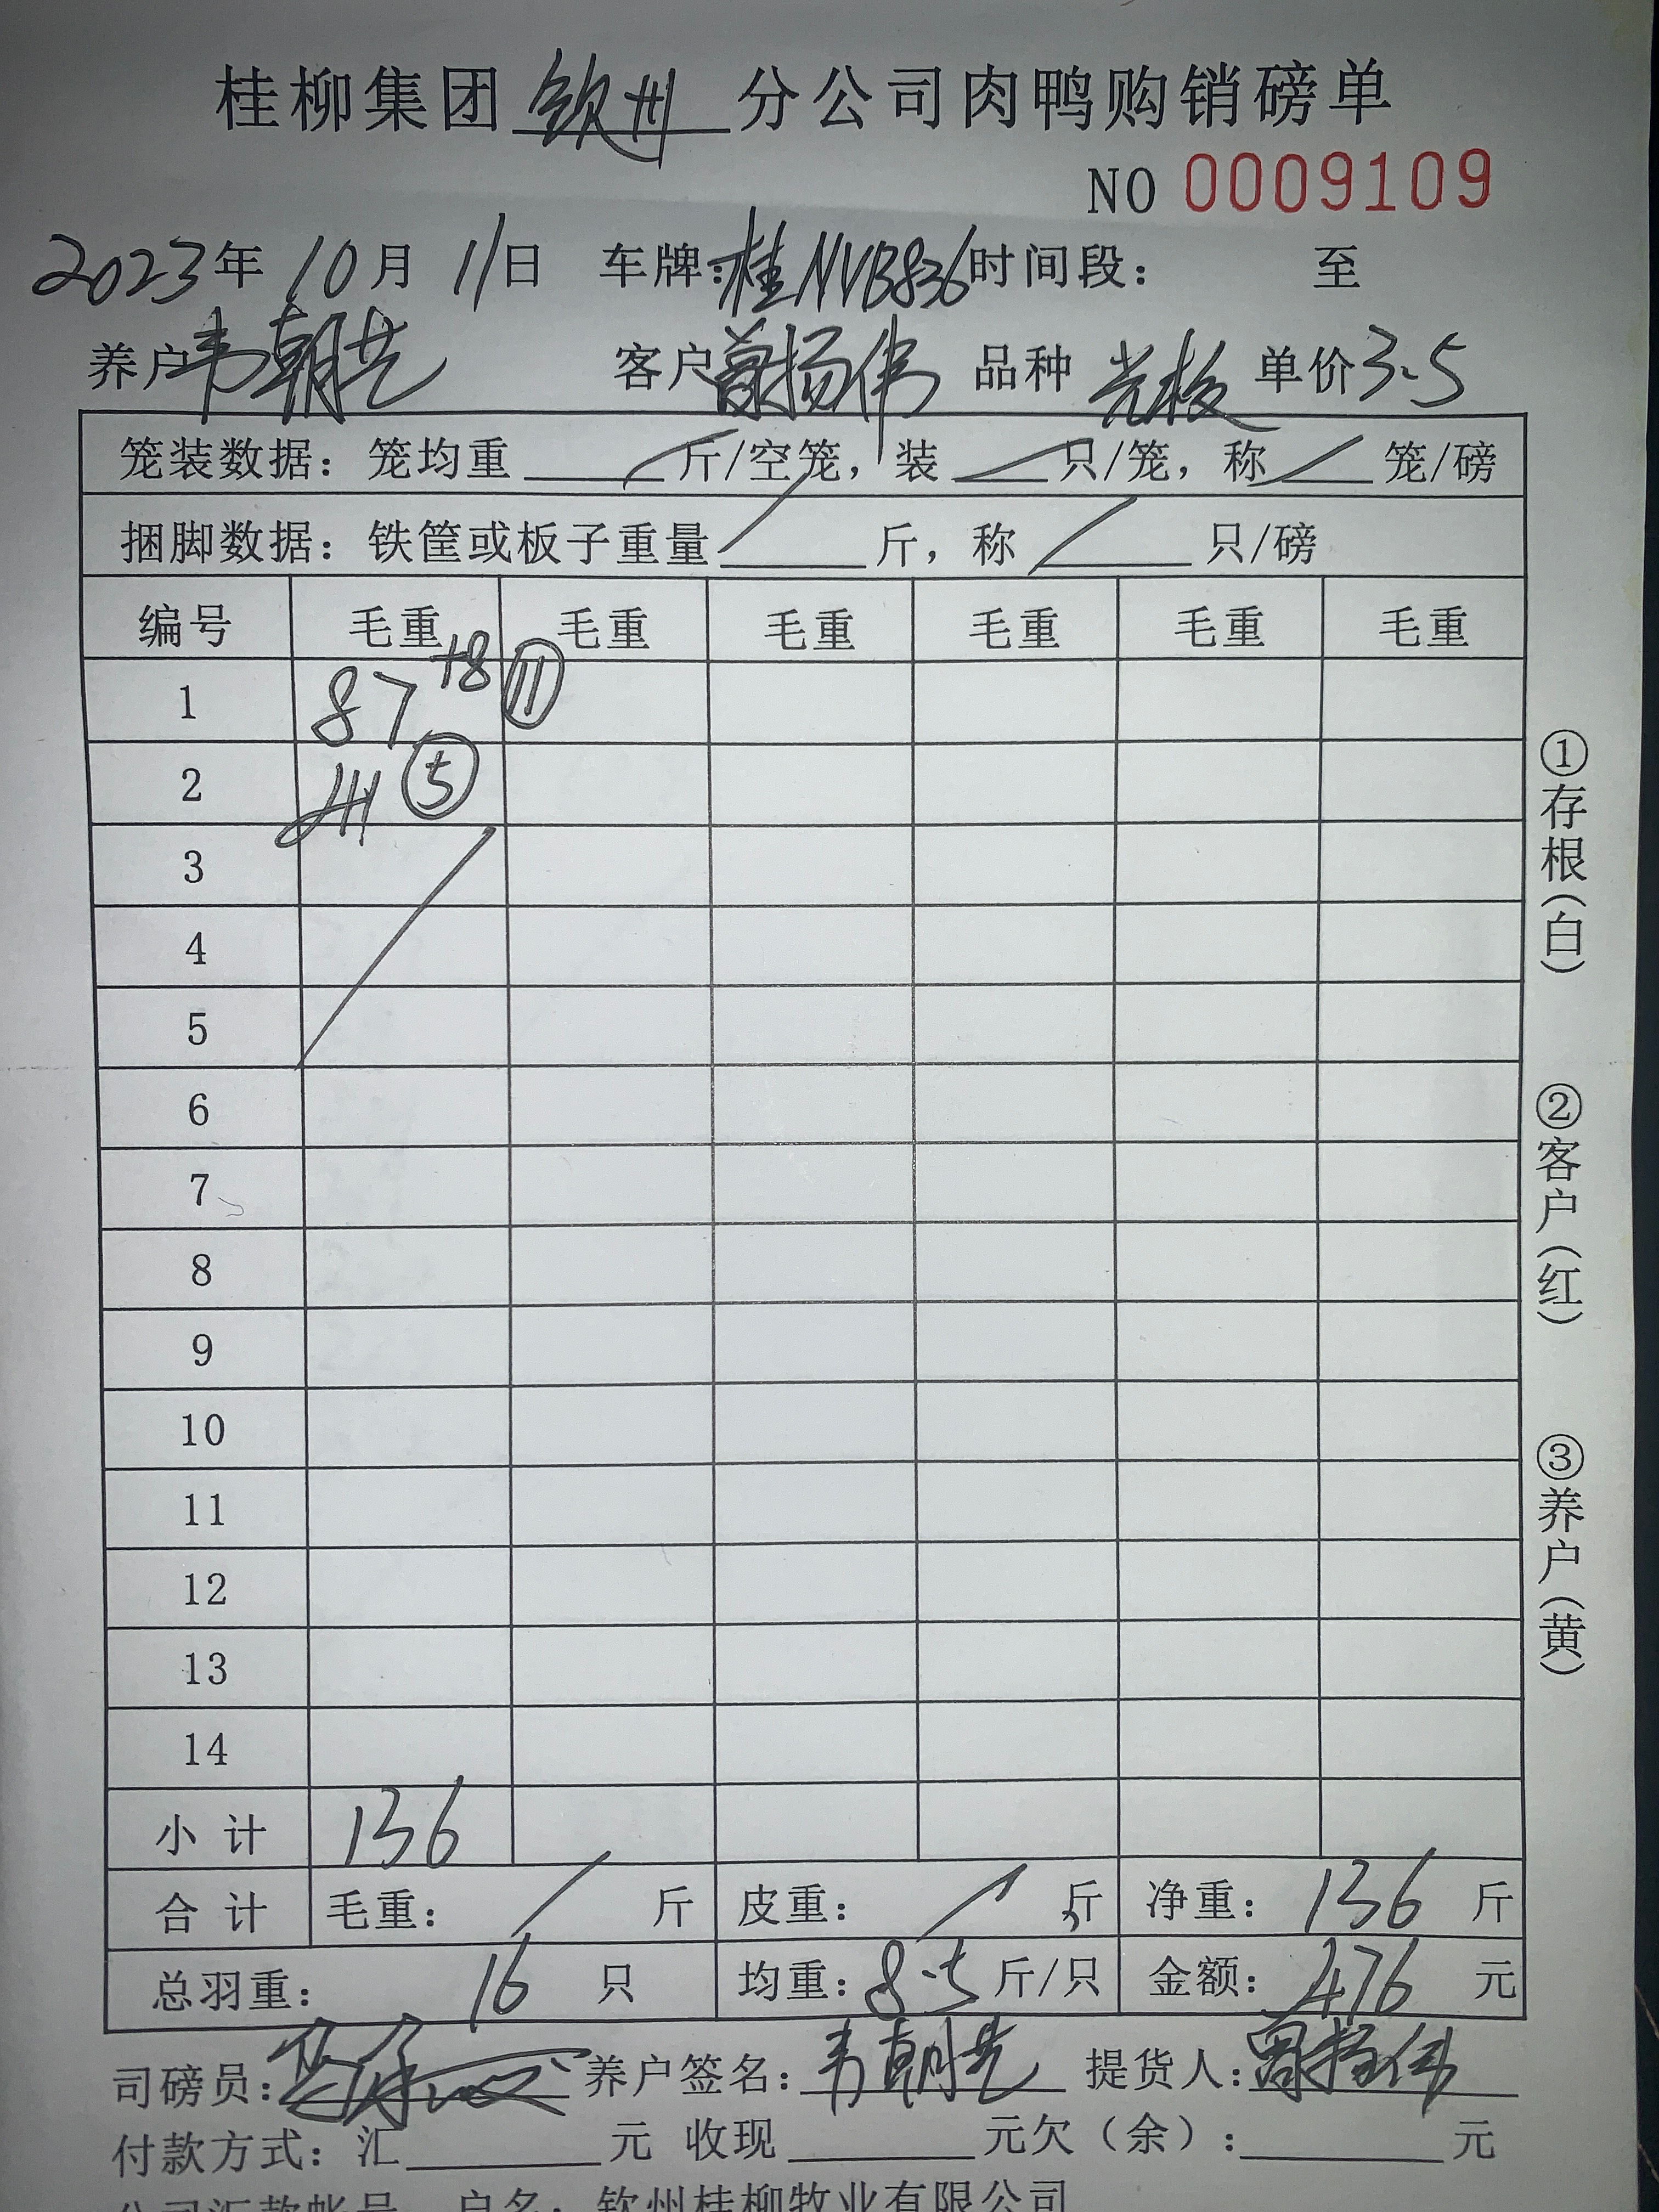 桂柳集团 钦州 分公司肉鸭购销磅单
NO 0009109
2023年 10月 11日 车牌:桂NVB836 时间段: 至
养户 韦朝艺 客户 曾扬伟 品种 光板 单价 3.5
笼装数据: 笼均重 / 斤/空笼, 装 / 只/笼, 称 / 笼/磅
捆脚数据: 铁筐或板子重量 / 斤, 称 / 只/磅
编号 毛重 毛重 毛重 毛重 毛重 毛重
1 87 +8 ⑪
2 41 ⑤
3
4
5
6
7
8
9
10
11
12
13
14
小 计 136
合 计 毛重: / 斤 皮重: / 斤 净重: 136 斤
总羽重: 16 只 均重: 8.5 斤/只 金额: 476 元
司磅员: 养户签名: 韦朝艺 提货人: 曾扬伟
付款方式: 汇 元 收现 元欠(余): 元
公司汇款帐号 户名: 钦州桂柳牧业有限公司
①存根(白)
②客户(红)
③养户(黄)